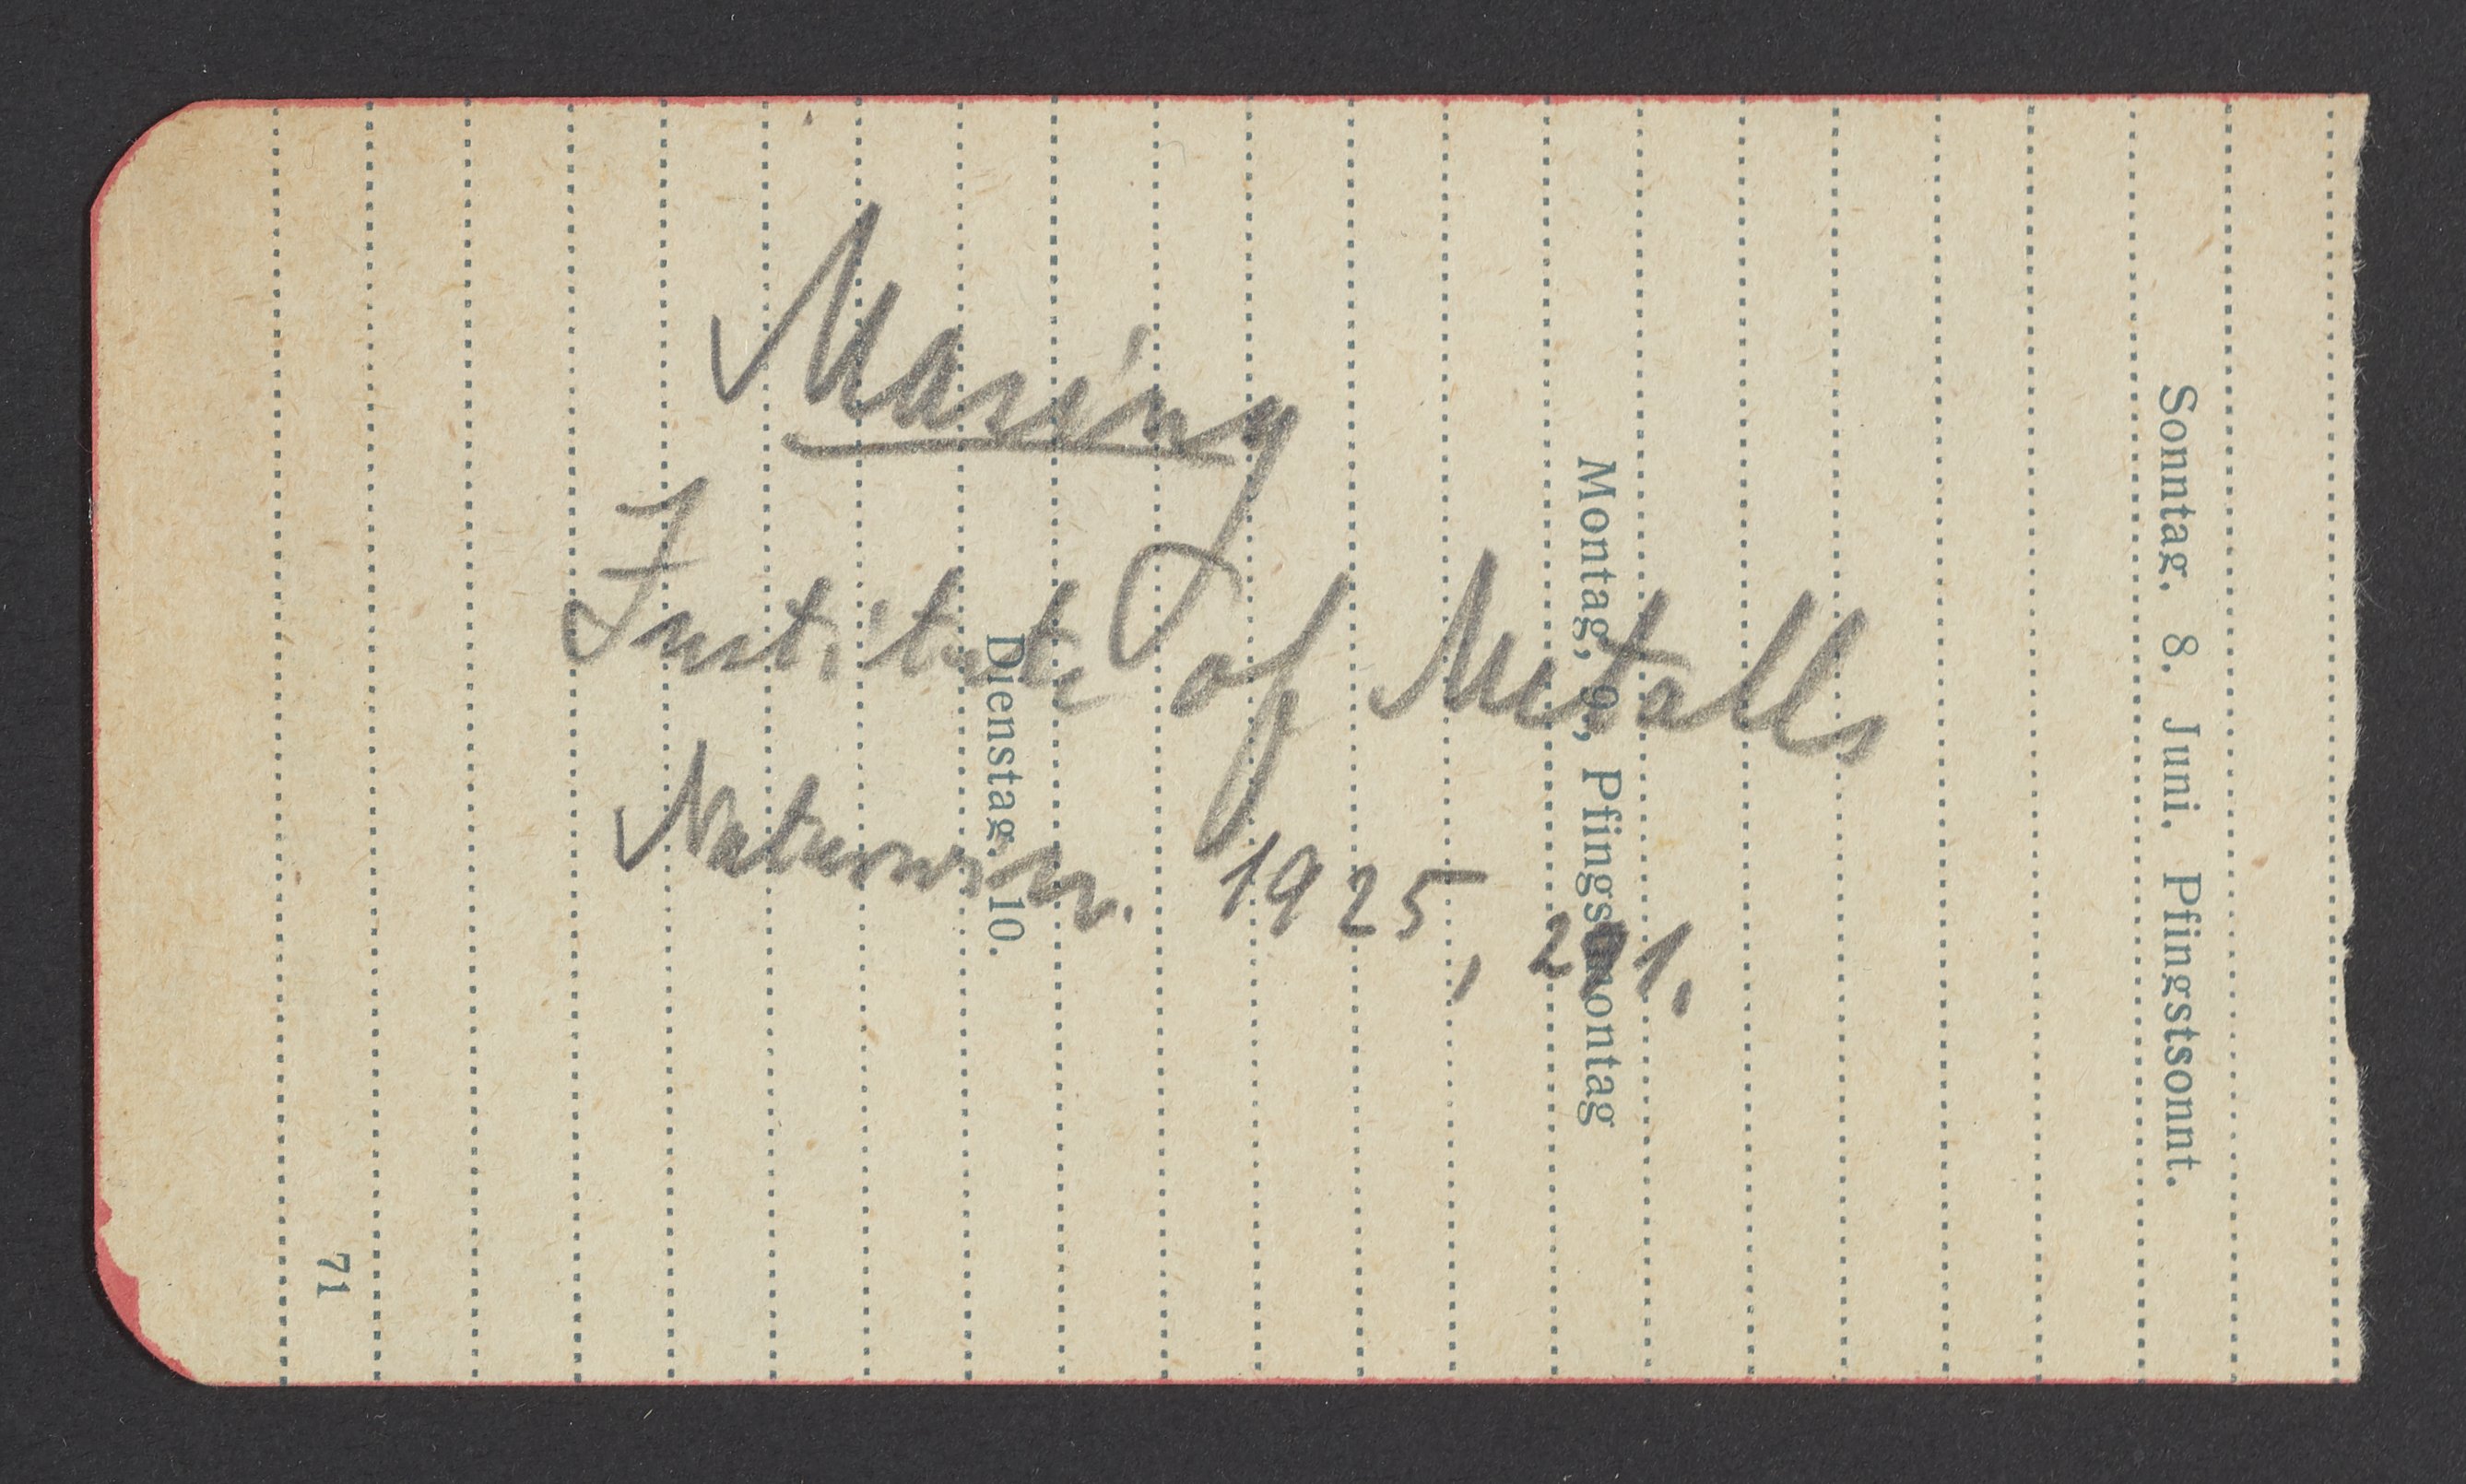 Masing
Institute of Metalls
Naturwiss. 1925,
Sonntag, 8. Juni, Pfingstsonnt.
Montag, 9., Pfingstmontag
Dienstag, 10.
71